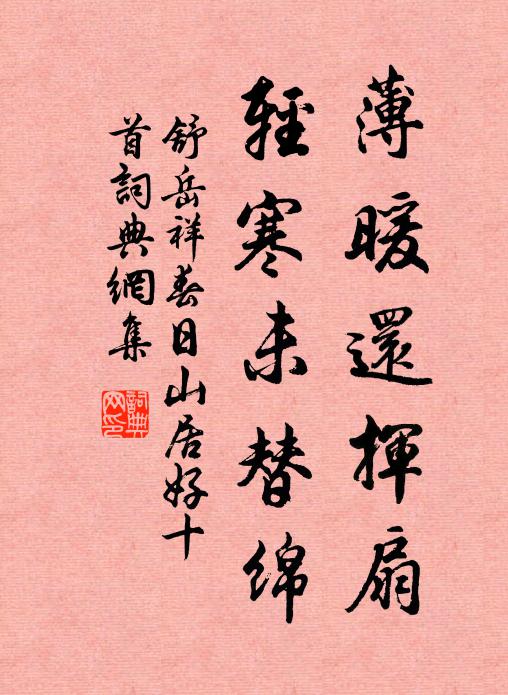 薄暖還揮扇
輕寒未替綿
舒岳祥春日山居好十
首詞典網集
詞典
网印